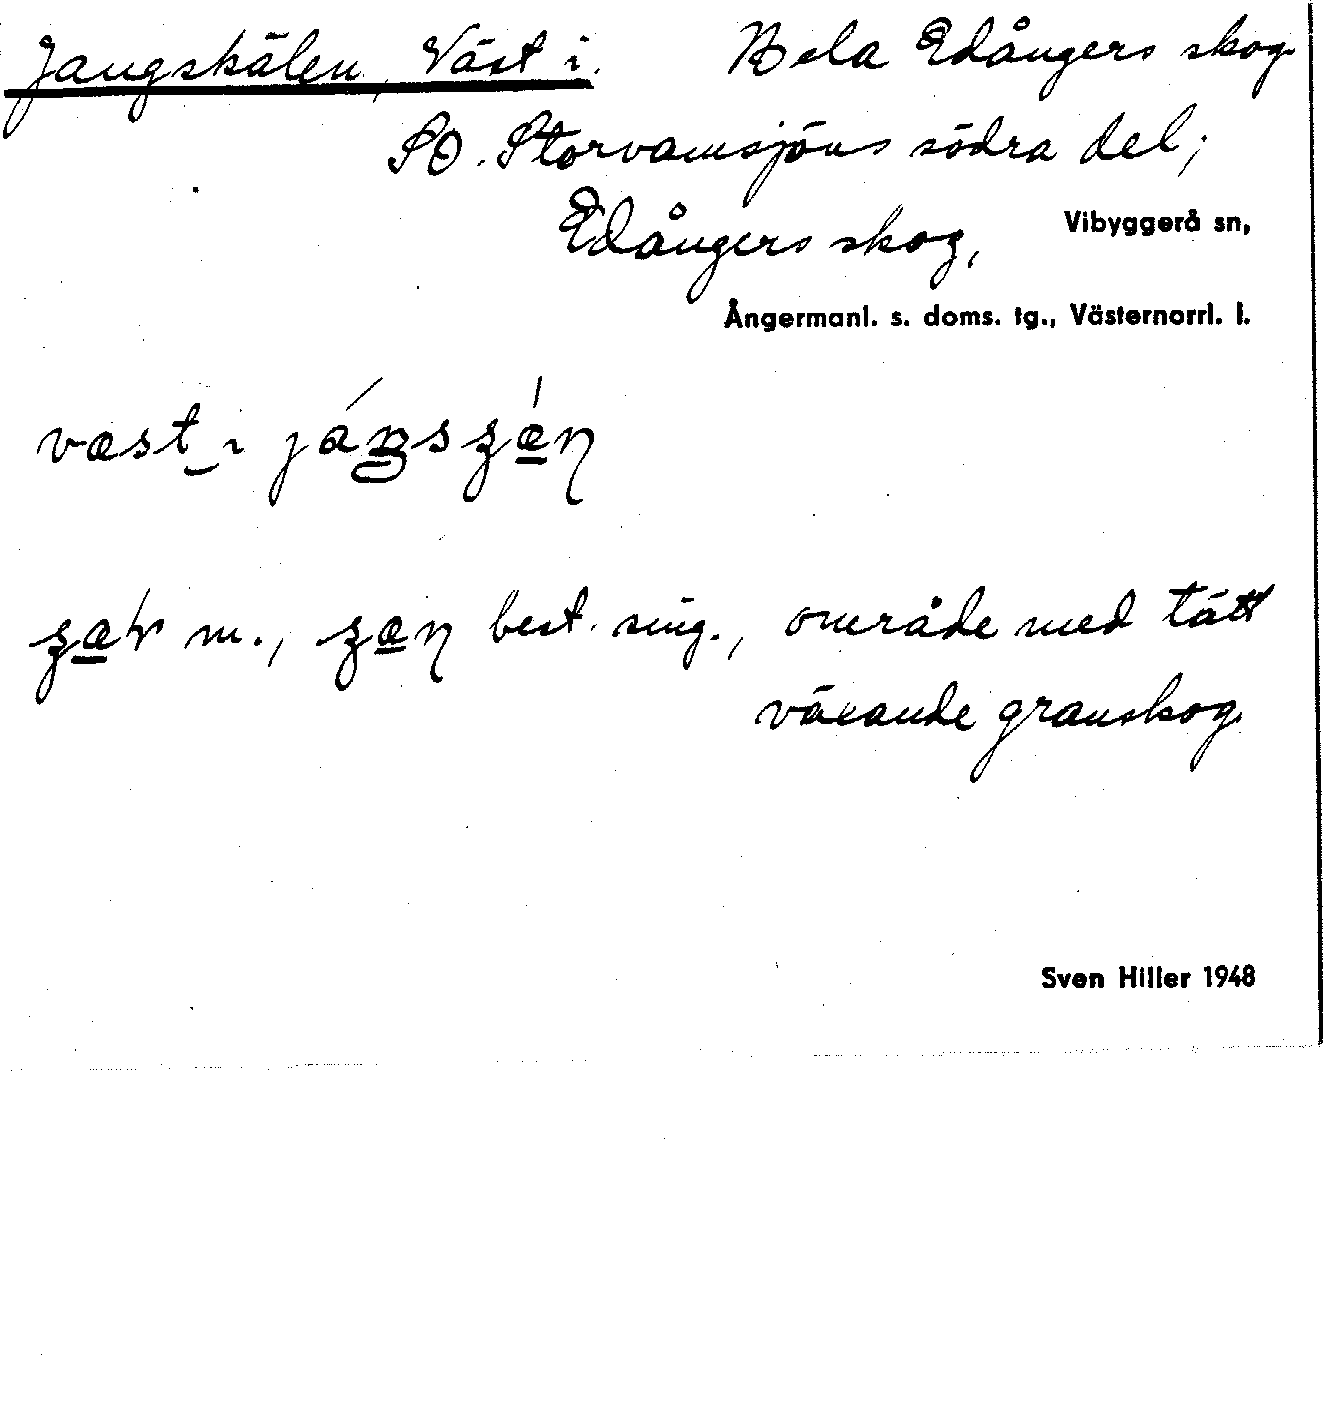 Jangskälen, Väst i. Bela Edångers skog
SO. Storvamsjöns södra del;
Edångers skog, Vibyggerå sn,
Ångermanl. s. doms. tg., Västernorrl. l.
m., best. sing., område med tätt
växande granskog.
Sven Hiller 1948